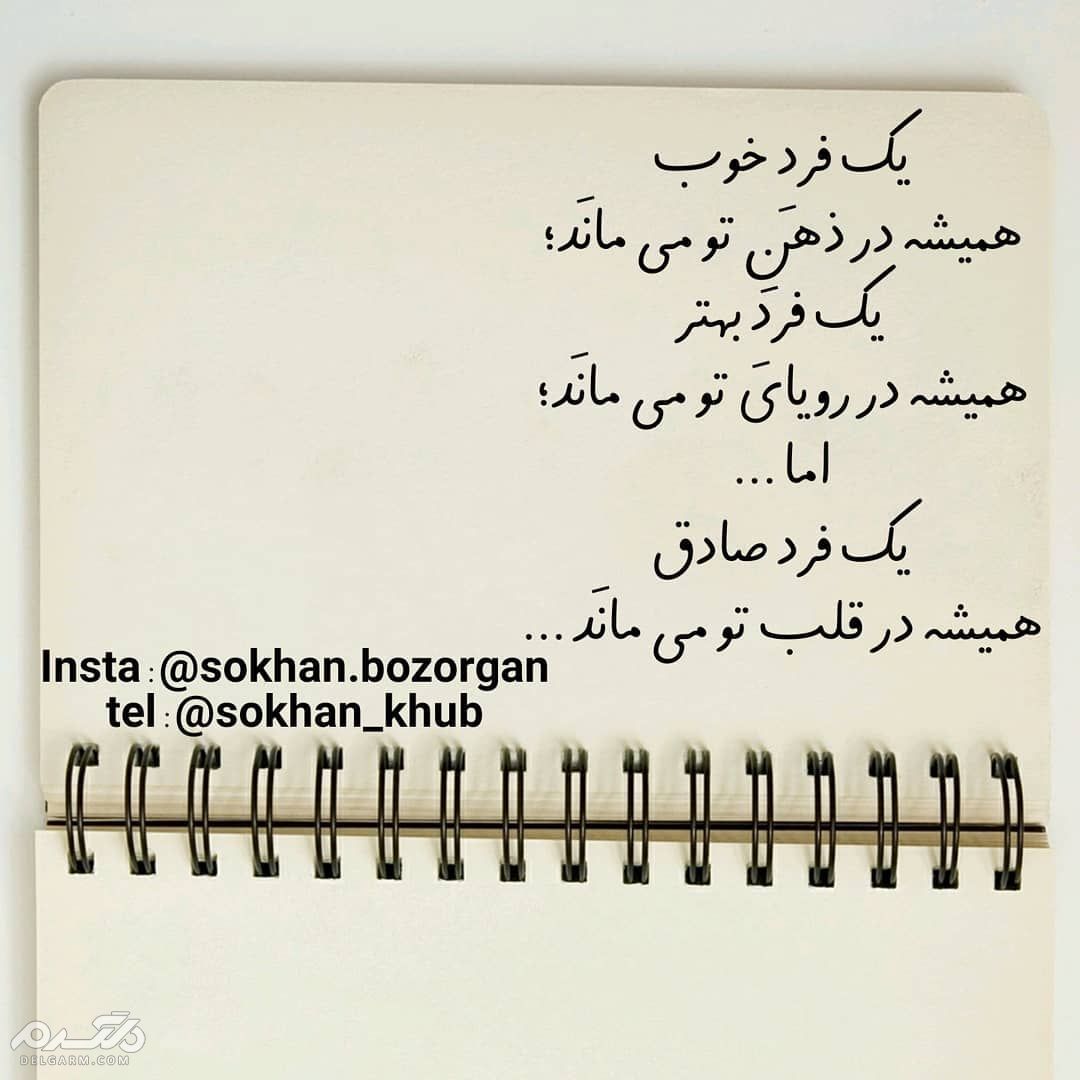 یک فرد خوب
همیشه در ذهنَِ تو می مانَد؛
یک فردَ بهتر
همیشه در رویایَ تو می مانَد؛
اما ...
یک فرد صادق
همیشه در قلب تو می مانَد ...
Insta : @sokhan.bozorgan
tel : @sokhan_khub
دلگرم
DELGARM.COM